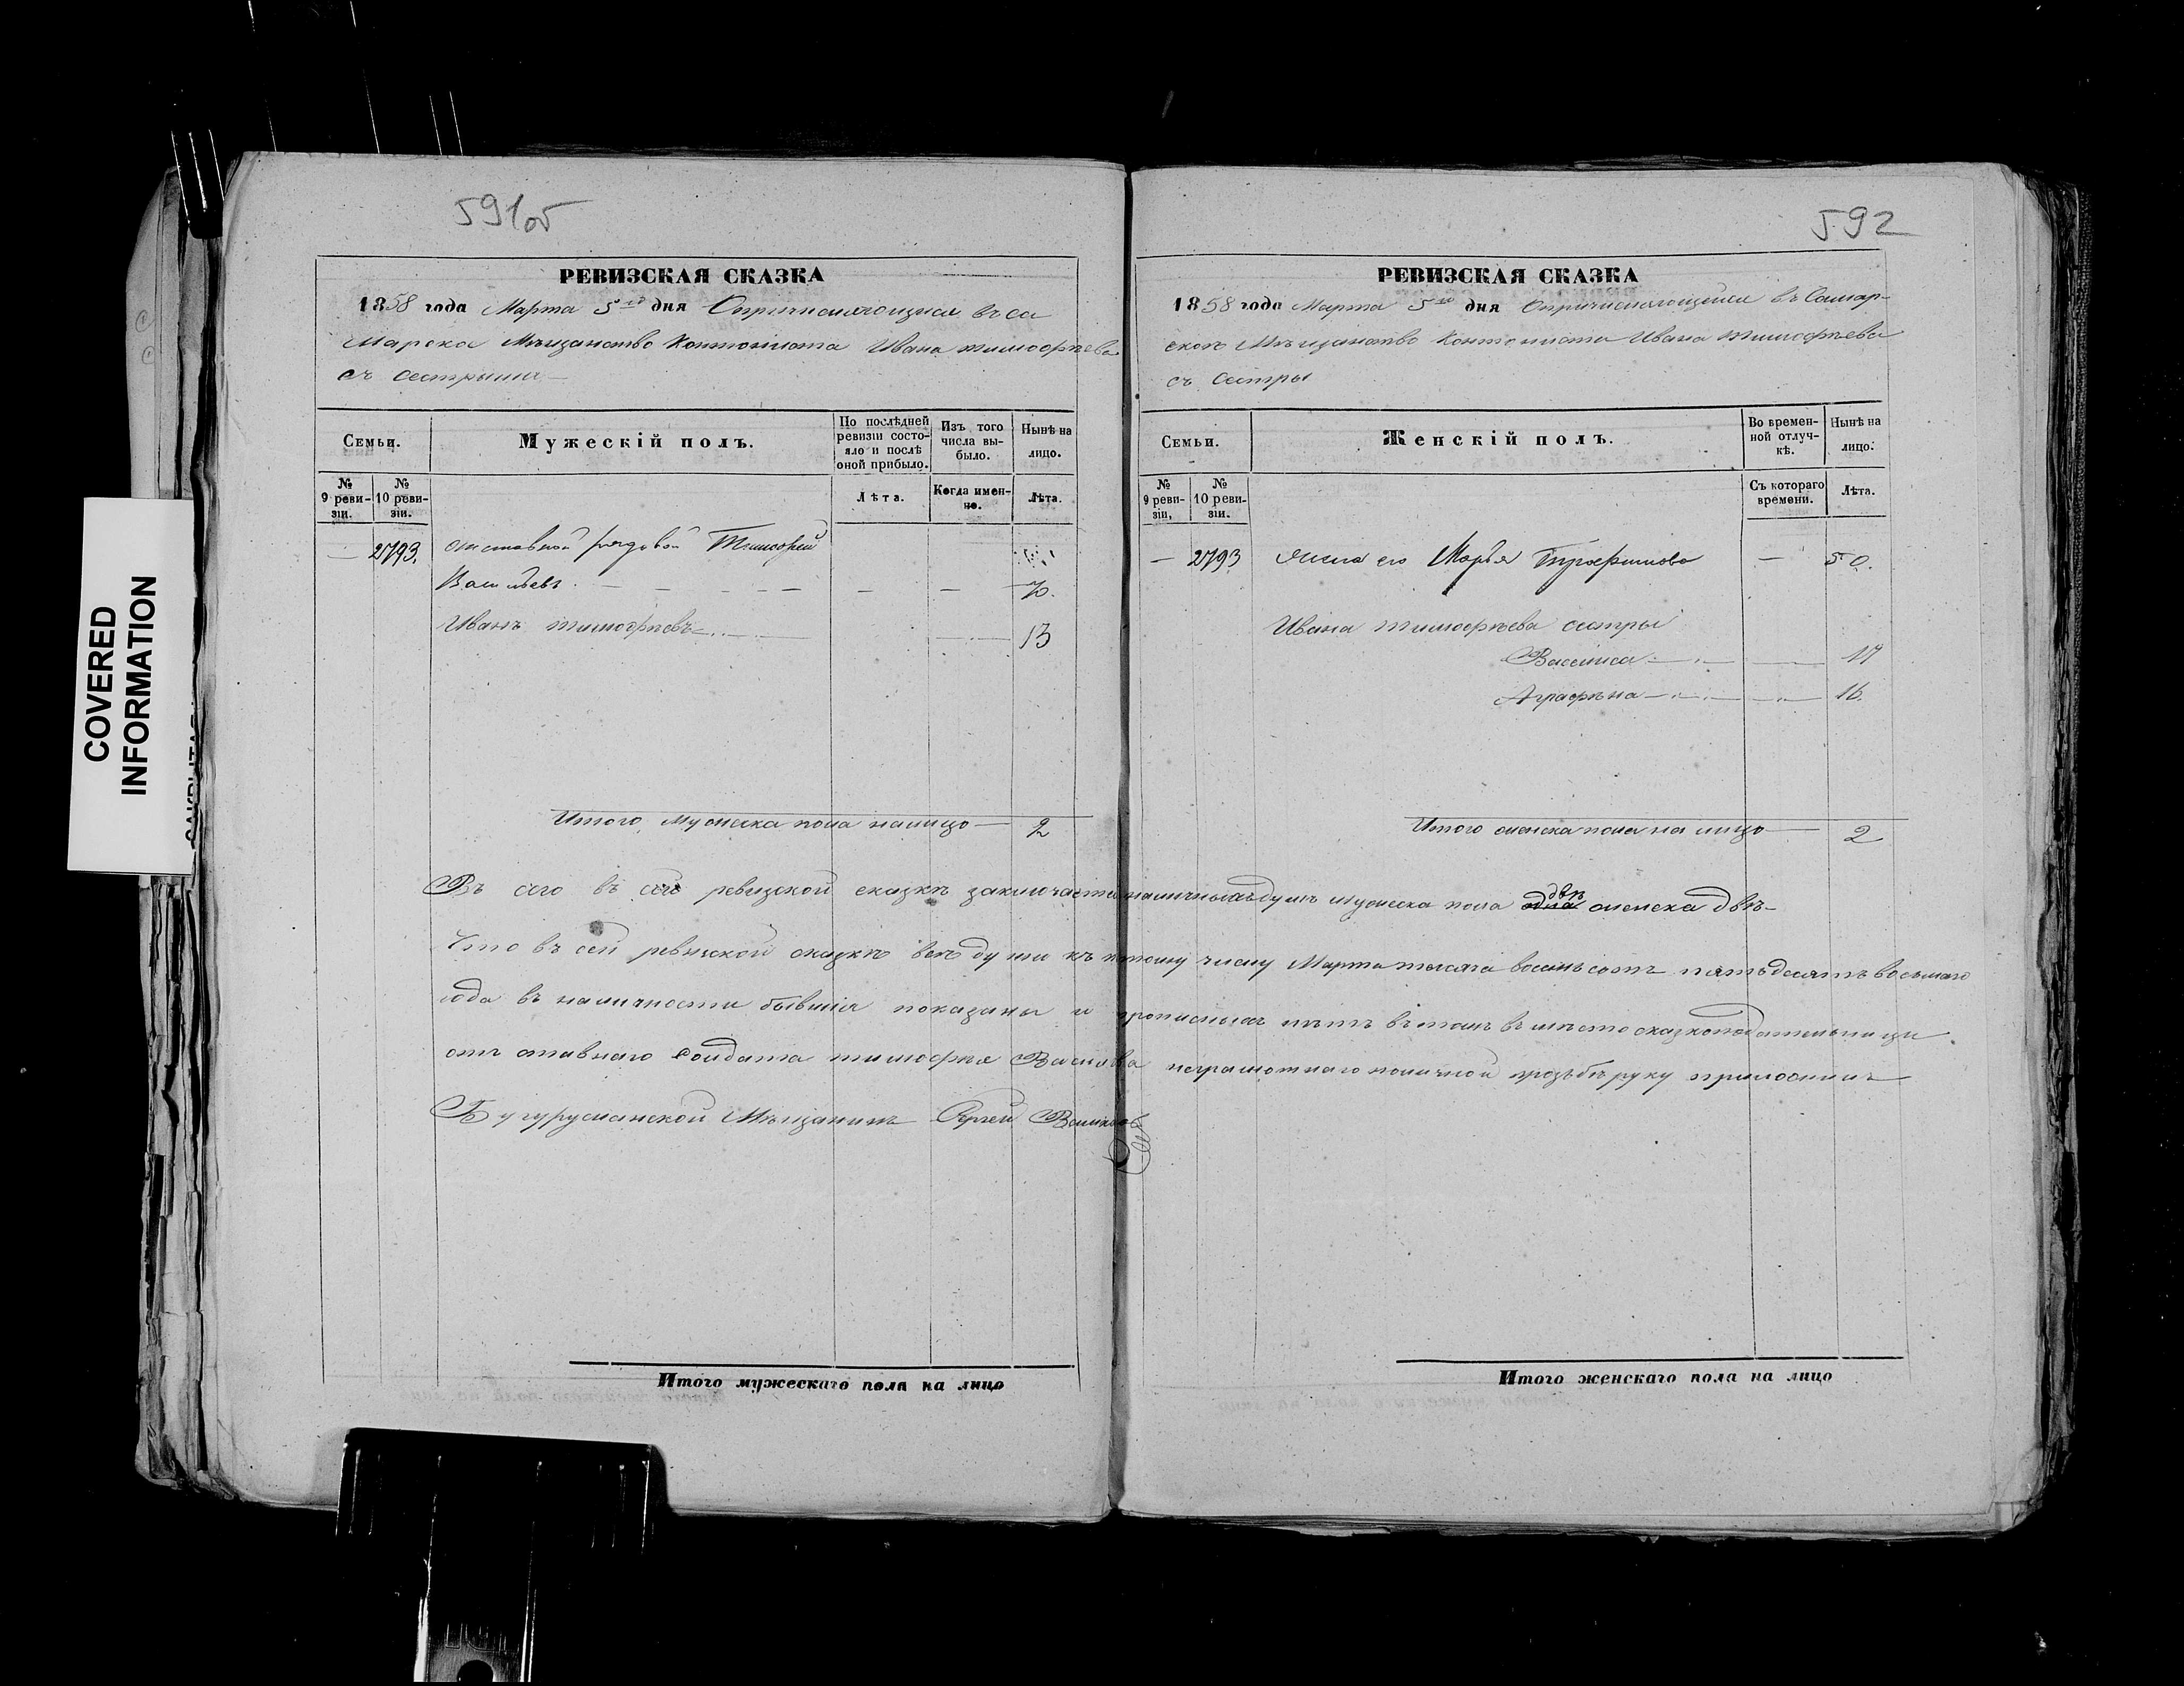 591об
РЕВИЗСКАЯ СКАЗКА
1858 года Марта 5го дня Опричисляющися въ са
марска Мѣщанство Контониста Ивана тимофѣева
съ сестрыми
Семьи.
Мужескій полъ.
По послѣдней ревизіи состояло и послѣ оной прибыло.
Изъ того числа выбыло.
Нынѣ на лицо.
№ 9 ревизіи.
№ 10 ревизіи.
Лѣта.
Когда именно.
Лѣта.
— 2793. отставной рядовой Тимофей
Васильевъ. — — — — — — — 70.
Иванъ тимофѣевъ — 13
Итого мужеска пола налицо — 2
592
РЕВИЗСКАЯ СКАЗКА
1858 года Марта 5го дня въ Самар-
скоѣ Мѣщанство Контониста Ивана тимофѣева
съ сестры
Семьи.
Женскій полъ.
Во временной отлучкѣ.
Нынѣ на лицо.
№ 9 ревизіи,
№ 10 ревизіи.
Съ котораго времени.
Лѣта.
— 2793 жена его Марья Трофимова — 50.
Ивана тимофѣева сестры
Васелиса — 17
Аграфѣна — 16.
Итого женска пола на лицо — 2
Въ ревизской сказкѣ заключается душъ мужеска пола одна двѣ женска двѣ-
Что въ сей ревизской сказкѣ всѣ души къ пятому числу Марта тысяча восемьсотъ пятьдесятъ восьмаго
года въ наличности бывшія показаны и прописныхъ нѣтъ въ томъ вмѣсто сказкоподательницы
отъ ставнаго Солдата тимофѣя Василева неграмотнаго поличной прозьбѣ руку приложилъ
Бугурусланской Мѣщанинъ Сергей
Итого мужескаго пола на лицо
Итого женскаго пола на лицо
COVERED
INFORMATION